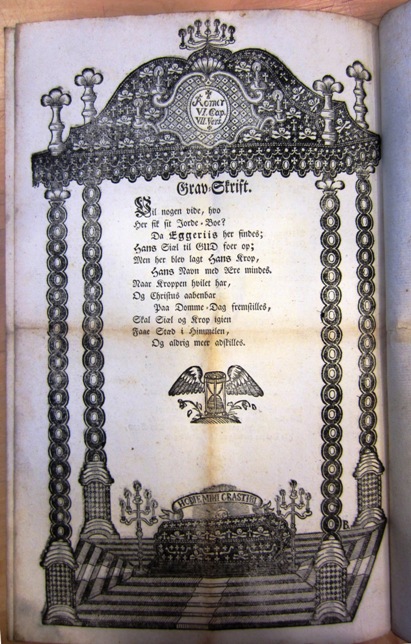 Romer
VI. Cap.
VII. Vers.
Grav-Skrift.
Vil nogen vide, hvo
Her fik sit Jorde-Boe?
Da Eggeriis her findes;
Hans Siæl til GUD foer op;
Men her blev lagt Hans Krop,
Hans Navn med Ære mindes.
Naar Kroppen hvilet har,
Og Christus aabenbar
Paa Domme-Dag fremstilles,
Skal Siæl og Krop igien
Faae Stæd i Himmelen,
Og aldrig meer adskilles.
HODIE MIHI CRAS TIBI